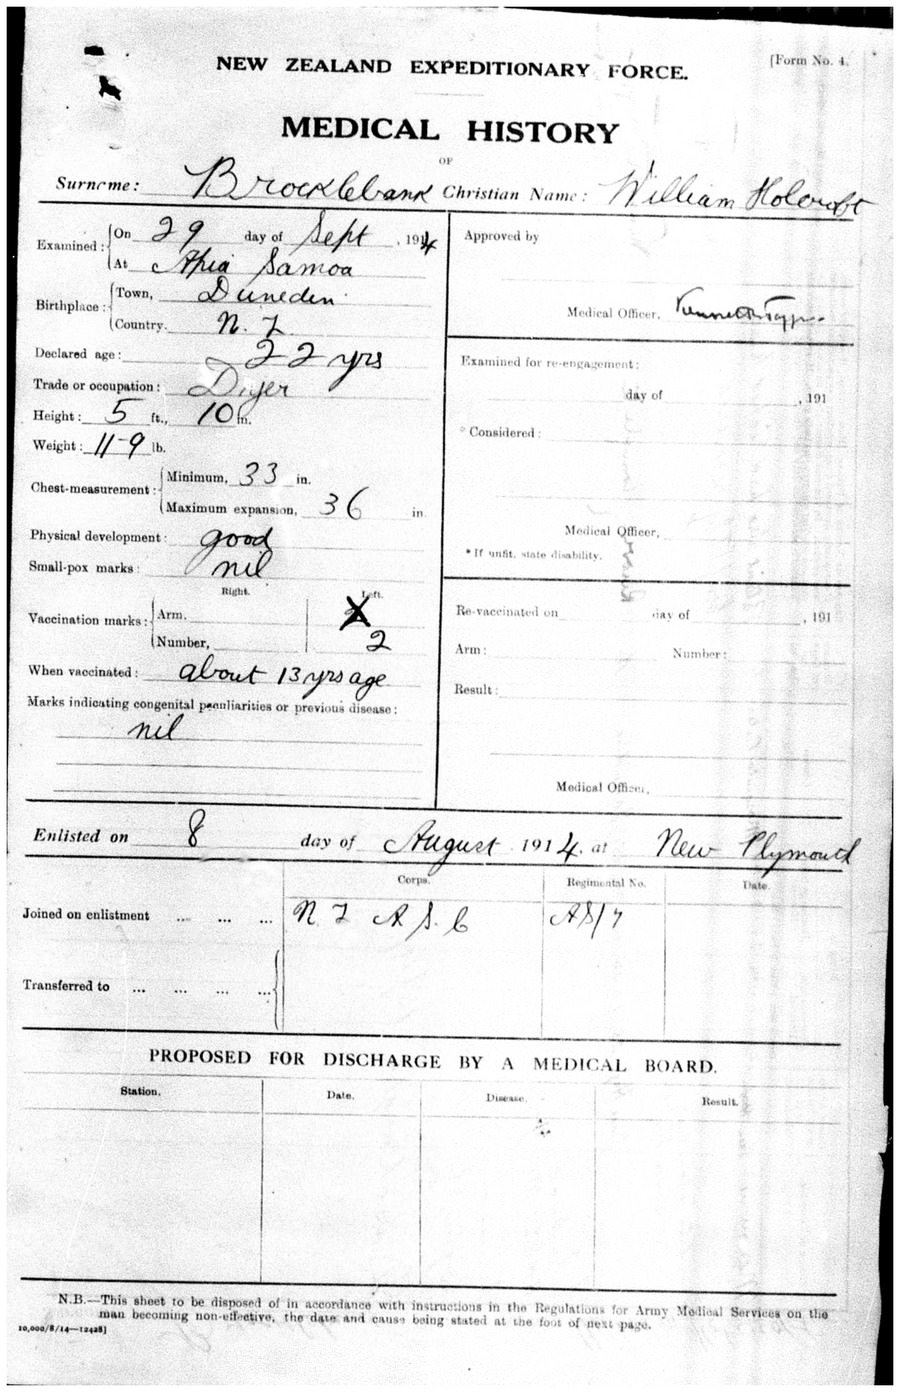 [Form No. 4.
NEW ZEALAND EXPEDITIONARY FORCE.
MEDICAL HISTORY
OF
Surname: Brocklebank Christian Name: William Holcroft
Examined: On 29 day of Sept, 1914
At Apia Samoa
Birthplace: Town, Dunedin
Country. N. Z
Declared age: 22 yrs
Trade or occupation: Dyer
Height: 5 ft., 10 in.
Weight: 11-9 lb.
Chest-measurement: Minimum, 33 in.
Maximum expansion, 36 in.
Physical development: good
Small-pox marks: nil
Right. Left.
Vaccination marks: Arm.
Number, 2
When vaccinated: about 13 yrs age
Marks indicating congenital peculiarities or previous disease:
nil
Approved by
Medical Officer.
Examined for re-engagement:
day of , 191
* Considered:
Medical Officer,
* If unfit, state disability.
Re-vaccinated on day of , 191
Arm: Number:
Result:
Medical Officer,
Enlisted on 8 day of August 1914. at New Plymouth
Corps. Regimental No. Date.
Joined on enlistment ... ... ... N Z A S. C AS/7
Transferred to ... ... ... ...
PROPOSED FOR DISCHARGE BY A MEDICAL BOARD.
Station. Date. Disease. Result.
N.B.—This sheet to be disposed of in accordance with instructions in the Regulations for Army Medical Services on the
man becoming non-effective, the date and cause being stated at the foot of next page.
10,000/8/14—12428]